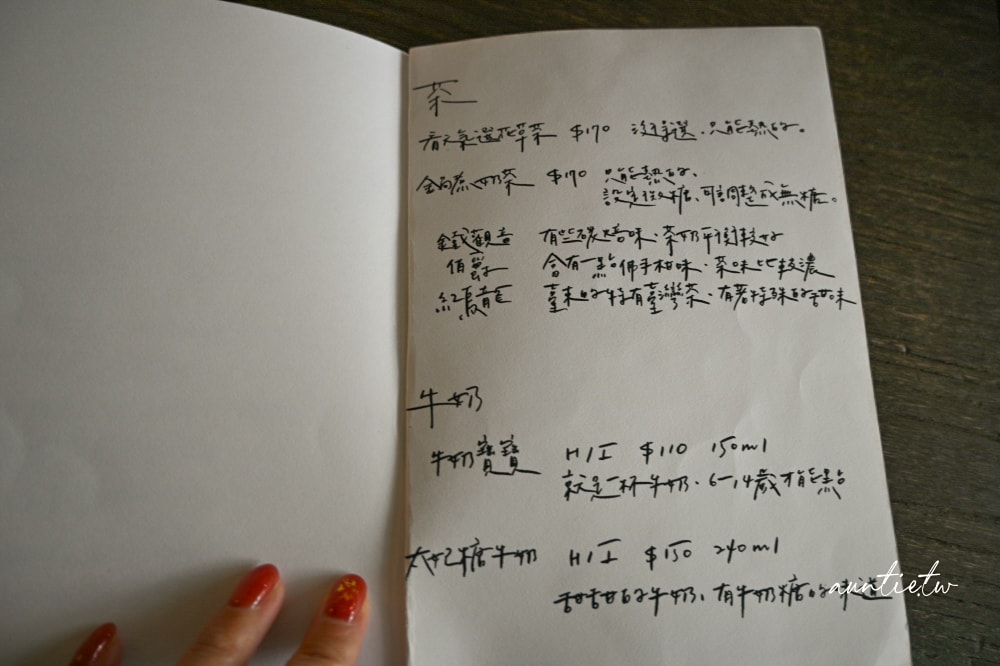 茶
看天氣選花草茶 $170 沒得選、只能熱的。
鍋煮奶茶 $170 只能熱的、
設定微糖、可調整成無糖。
鐵觀音 有些碳焙味、茶奶平衡較好
伯爵 會有一點佛手柑味、茶味比較濃
紅烏龍 臺東的特有臺灣茶、有著特殊的甜味
牛奶
牛奶寶寶 H/I $110 150ml
就是一杯牛奶、6-14歲才能點
太妃糖牛奶 H/I $150 240ml
甜甜的牛奶、有牛奶糖的味道
auntie.tw